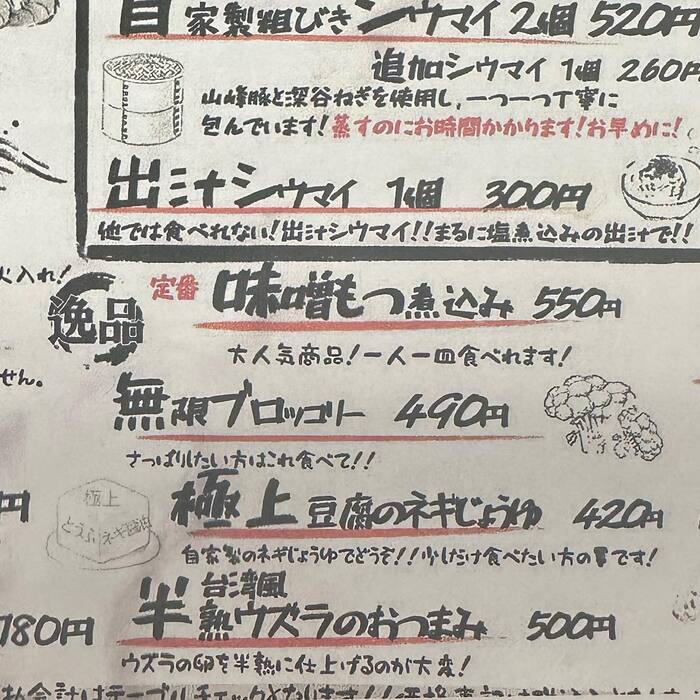 自家製粗びきシウマイ 2個 520円
追加シウマイ 1個 260円
山峰豚と深谷ねぎを使用し、一つ一つ丁寧に
包んでいます!蒸すのにお時間かかります!お早めに!
出汁シウマイ 1個 300円
他では食べれない!出汁シウマイ!!まるに塩煮込みの出汁で!!
火入れ!
逸品
定番 味噌もつ煮込み 550円
大人気商品!一人一皿食べれます!
せん。
無限ブロッコリー 490円
さっぱりしたい方はこれ食べて!!
円
極上
とうふネギ醤油
極上豆腐のネギじょうゆ 420円
自家製のネギじょうゆでどうぞ!!少しだけ食べたい方の丁です!
780円
台湾風
半熟ウズラのおつまみ 500円
ウズラの卵を半熟に仕上げるのが大変!
お会計はテーブルチェックとなります!!